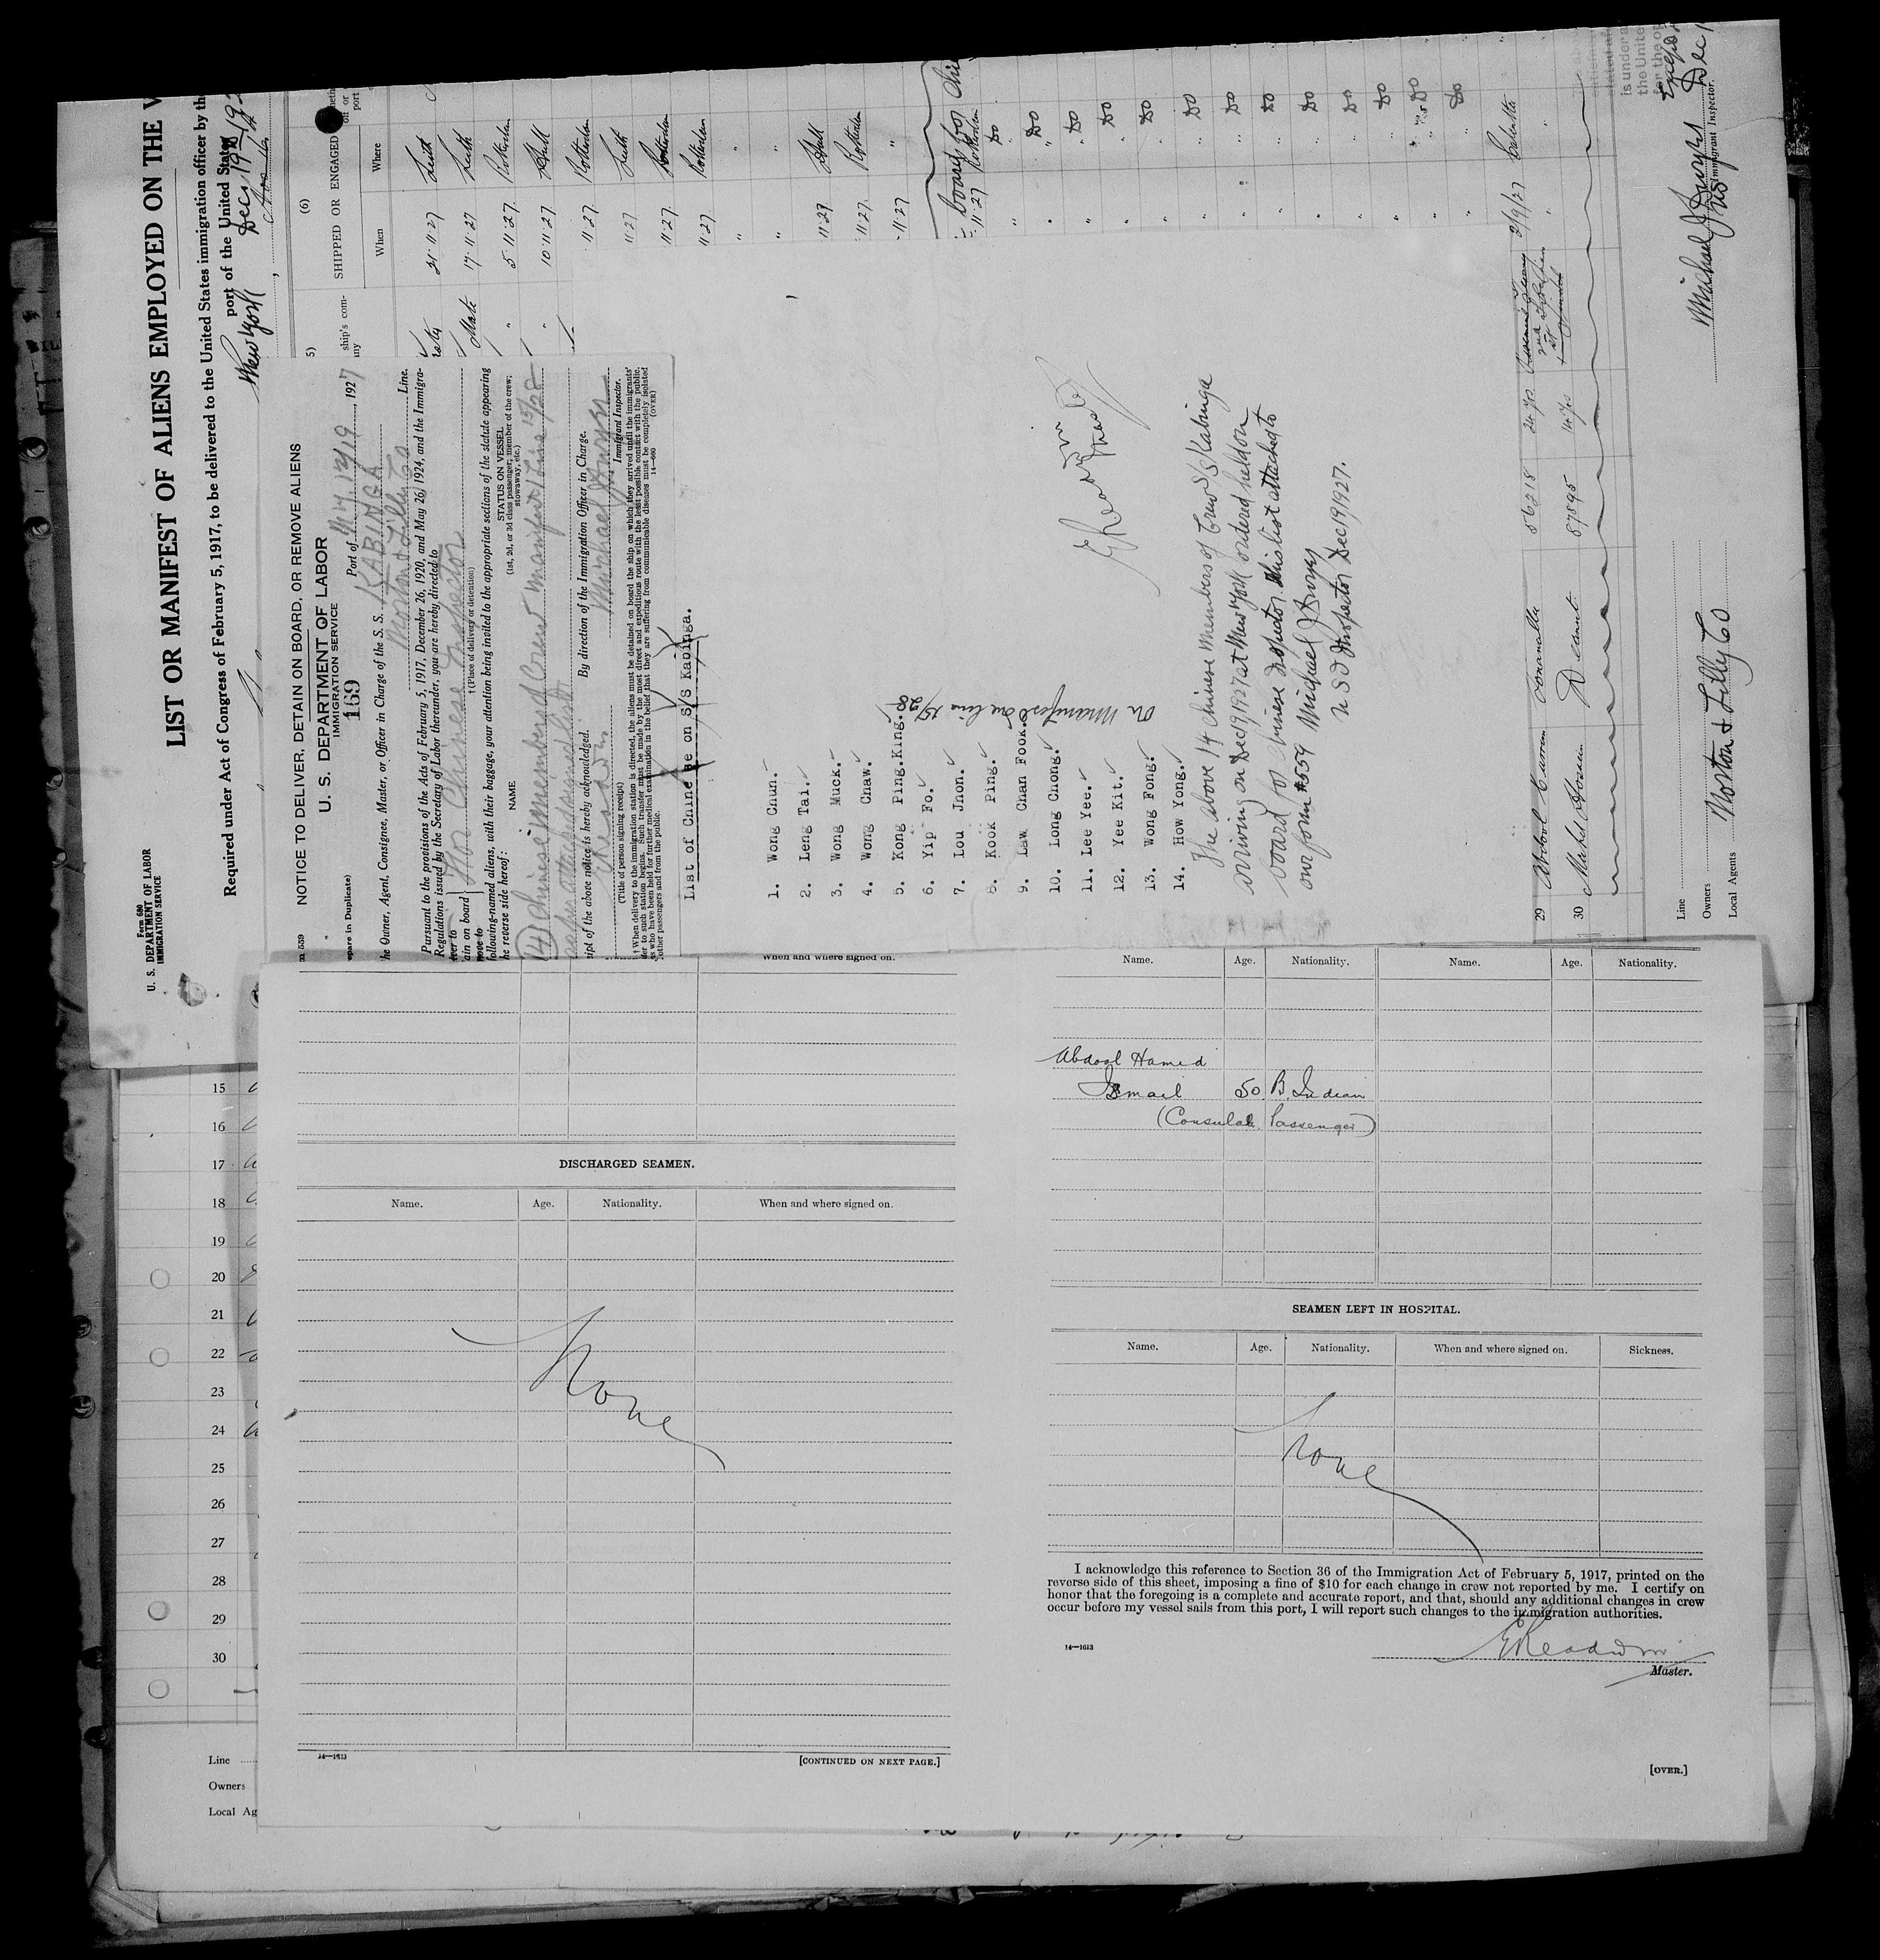 Form 680
U. S. DEPARTMENT OF LABOR
IMMIGRATION SERVICE
LIST OR MANIFEST OF ALIENS EMPLOYED ON THE
Required under Act of Congress of February 5, 1917, to be delivered to the United States immigration officer by the
port of the United States
New York Dec 19
(6)
SHIPPED OR ENGAGED
When Where
ship's com-
21·11·27 Leith
17·11·27 Leith
5·11·27 Rotterdam
10·11·27 Hull
11·27 Rotterdam
11·27 Leith
11·27 Rotterdam
11·27 Rotterdam
" "
" "
11·27 Hull
11·27 Rotterdam
11·27 "
board for
11·27 Rotterdam Do
" " Do
" " Do
" " Do
" " Do
" " Do
" " Do
" " Do
" " Do
" " Do
" " Do
" " Do
" " Do
29 Abdool 56218 24 yrs 2/9/27 Calcutta
30 Hosein 87895 14 yrs " "
Line
Owners
Local Agents Norton & Lilly Co
Immigrant Inspector.
is under a
the Unite
for the op
NOTICE TO DELIVER, DETAIN ON BOARD, OR REMOVE ALIENS
U. S. DEPARTMENT OF LABOR
IMMIGRATION SERVICE
169
Port of N.Y. 12/19, 1927
he Owner, Agent, Consignee, Master, or Officer in Charge of the S. S. KABINGA
Norton & Lilly Co Line.
Pursuant to the provisions of the Acts of February 5, 1917, December 26, 1920, and May 26, 1924, and the Immigra-
Regulations issued by the Secretary of Labor thereunder, you are hereby directed to
ain on board For Chinese Inspector
† (Place of delivery or detention)
ollowing-named aliens, with their baggage, your attention being invited to the appropriate sections of the statute appearing
he reverse side hereof:
NAME
STATUS ON VESSEL
(1st, 2d, or 3d class passenger; member of the crew;
stowaway, etc.)
(14) Chinese members of Crew manifest Line 15/28
as per attached signed list
ipt of the above notice is hereby acknowledged. By direction of the Immigration Officer in Charge.
(Title of person signing receipt) Immigrant Inspector.
† When delivery to the immigration station is directed, the aliens must be detained on board the ship on which they arrived until the immigrants'
der to such station begins. Such transfer must be made by the most direct and expeditious route with the least possible contact with the public.
s who have been held for further medical examination in the belief that they are suffering from communicable diseases must be completely isolated
other passengers and from the public. 14—660 (OVER)
List of Chinese on S/S Kabinga.
1. Wong Chun.
2. Leng Tai.
3. Wong Muck.
4. Wong Chaw.
5. Kong Ping King.
6. Yip Fo.
7. Lou Jhon.
8. Kook Ping.
9. Law Chan Fook.
10. Long Chong.
11. Lee Yee.
12. Yee Kit.
13. Wong Fong.
14. How Yong.
On Manifest on line 15/28
The above 14 Chinese members of Crew SS Kabinga
arriving on Dec 19 1927 at New York ordered held on
board for Chinese Inspector. this list attached to
our form #559 Michael J
U S Inspector Dec 19 1927.
15
16
17
18
19
20
21
22
23
24
25
26
27
28
29
30
Line
Owners
Local Ag
When and where signed on.
DISCHARGED SEAMEN.
Name. Age. Nationality. When and where signed on.
None
14—1613
[CONTINUED ON NEXT PAGE.]
Name. Age. Nationality. Name. Age. Nationality.
Abdool Hamid
Ismail 50 B. Indian
(Consular Passenger)
SEAMEN LEFT IN HOSPITAL.
Name. Age. Nationality. When and where signed on. Sickness.
None
I acknowledge this reference to Section 36 of the Immigration Act of February 5, 1917, printed on the
reverse side of this sheet, imposing a fine of $10 for each change in crew not reported by me. I certify on
honor that the foregoing is a complete and accurate report, and that, should any additional changes in crew
occur before my vessel sails from this port, I will report such changes to the immigration authorities.
14—1613
Master.
[OVER.]